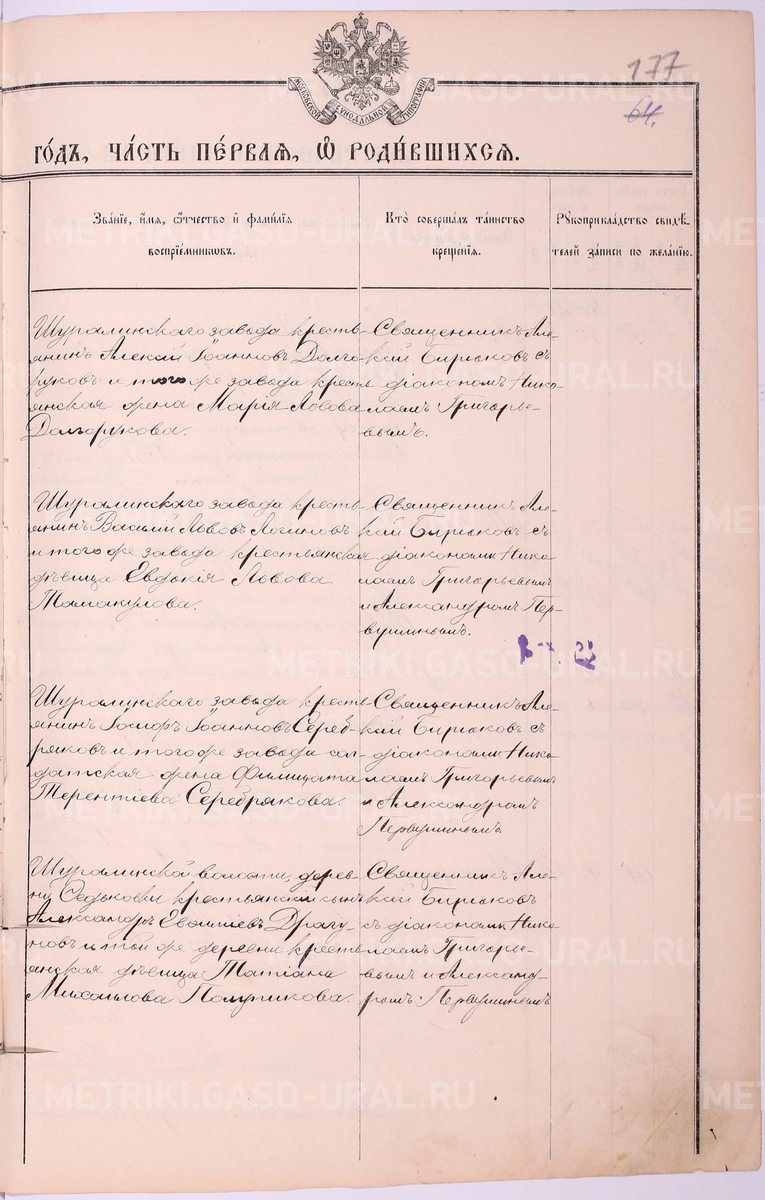 177
64.
МОСКОВСКОЙ СѴНОДАЛЬНОЙ ТИПОГРАФІИ
го́дъ, ча́сть пе́рвая, ѡ҆ роди́вшихся.
Зва́нїе, и҆́мя, ѻ҆́тчество и҆ фами́лїя
воспрїе́мниковъ.
Кто̀ соверша́лъ та́инство
креще́нїя.
Рꙋкоприкла́дство свидѣ́-
телей за́писи по жела́нїю.
Шуралинскаго завода кресть-
янинъ Алексій Іоанновъ Долго-
руковъ и того же завода кресть
янская жена Марія Львова
Долгорукова.
Священникъ Але-
ксій Бирюковъ съ
діакономъ Нико
лаемъ Григорье-
вымъ.
Шуралинскаго завода кресть
янинъ Василій Львовъ Логиновъ
и того же завода крестьянская
дѣвица Евдокія Львова
Тамакулова.
Священникъ Але-
ксій Бирюковъ съ
діаконами Нико
лаемъ Григорьевымъ
и Александромъ Пер-
вушинымъ.
Шуралинскаго завода кресть
янинъ Іосифъ Іоанновъ Сереб-
ряковъ и того же завода сол-
датская жена Филицата
Терентіева Серебрякова.
Священникъ Але-
ксій Бирюковъ съ
діаконами Нико
лаемъ Григорьевымъ
и Александромъ
Первушинымъ.
Шуралинской волости, дерев-
ни Федьковки крестьянскій сынъ
Александръ Евѳиміевъ Драгу-
новъ и той же деревни кресть
янская дѣвица Татіана
Михаилова Полупикова.
Священникъ Але-
ксій Бирюковъ
съ діаконами Нико
лаемъ Григорье-
вымъ и Александ-
ромъ Первушинымъ
METRIKI.GASO-URAL.RU